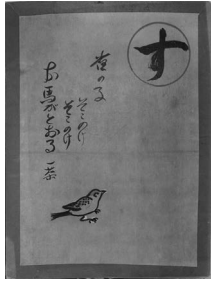 す
雀の子
そこのけ
そこのけ
お馬がとおる 一茶